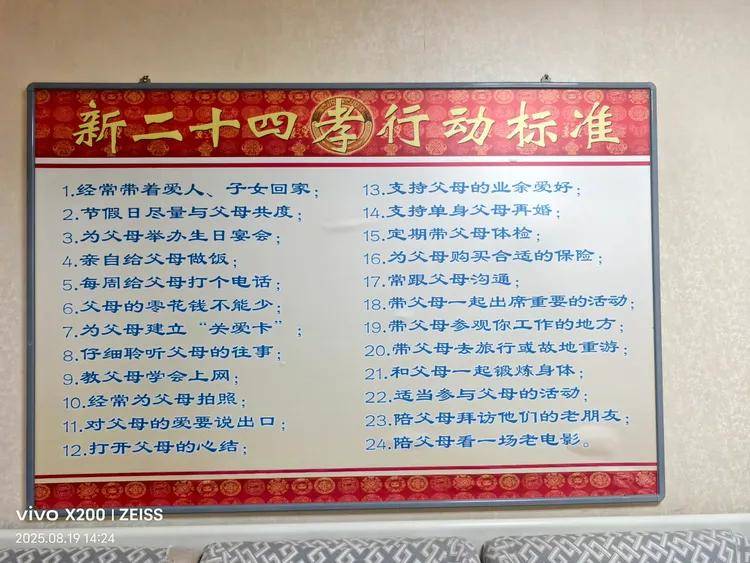 新二十四孝行动标准
1.经常带着爱人、子女回家；
2.节假日尽量与父母共度；
3.为父母举办生日宴会；
4.亲自给父母做饭；
5.每周给父母打个电话；
6.父母的零花钱不能少；
7.为父母建立“关爱卡”；
8.仔细聆听父母的往事；
9.教父母学会上网；
10.经常为父母拍照；
11.对父母的爱要说出口；
12.打开父母的心结；
13.支持父母的业余爱好；
14.支持单身父母再婚；
15.定期带父母体检；
16.为父母购买合适的保险；
17.常跟父母沟通；
18.带父母一起出席重要的活动；
19.带父母参观你工作的地方；
20.带父母去旅行或故地重游；
21.和父母一起锻炼身体；
22.适当参与父母的活动；
23.陪父母拜访他们的老朋友；
24.陪父母看一场老电影。
vivo X200 | ZEISS
2025.08.19 14:24